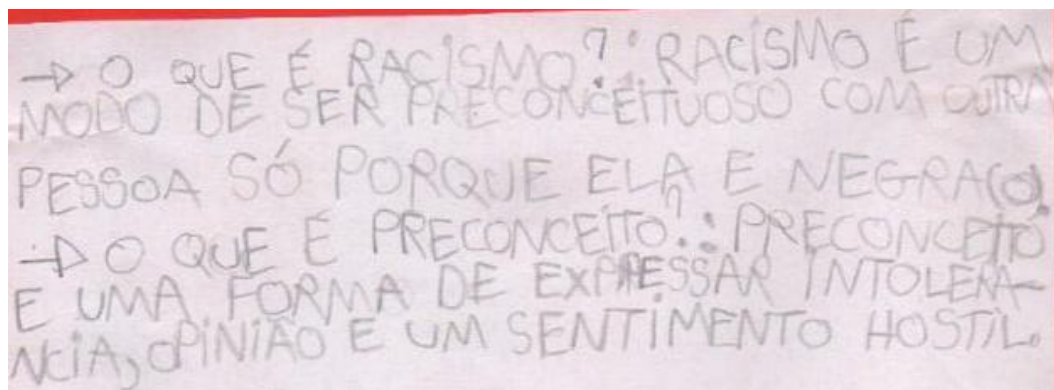 → O QUE É RACISMO?: RACISMO É UM
MODO DE SER PRECONCEITUOSO COM OUTRA
PESSOA SÓ PORQUE ELA E NEGRA(O).
→ O QUE É PRECONCEITO?: PRECONCEITO
E UMA FORMA DE EXPRESSAR INTOLERA-
NCIA, OPINIÃO E UM SENTIMENTO HOSTIL.